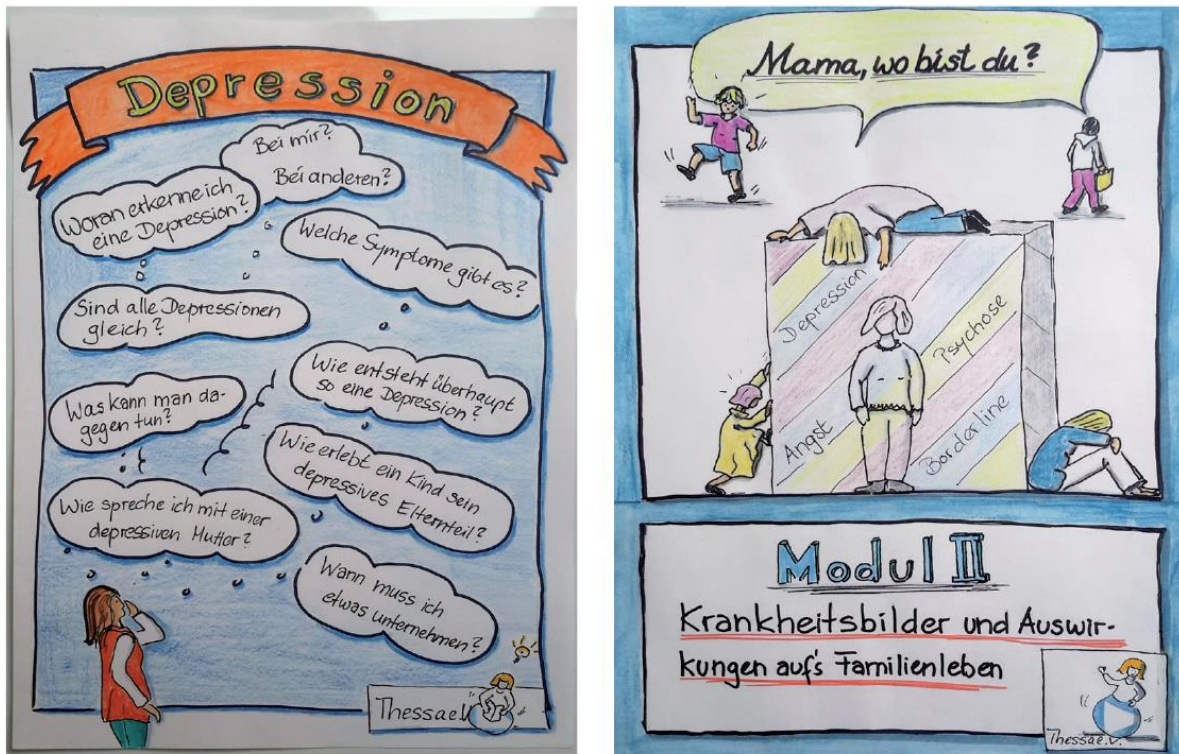 Depression
Bei mir?
Bei anderen?
Woran erkenne ich
eine Depression?
Welche Symptome gibt es?
Sind alle Depressionen
gleich?
Wie entsteht überhaupt
so eine Depression?
Was kann man da-
gegen tun?
Wie erlebt ein Kind sein
depressives Elternteil?
Wie spreche ich mit einer
depressiven Mutter?
Wann muss ich
etwas unternehmen?
Thessa e.V.
Mama, wo bist du?
Depression
Psychose
Angst
Borderline
Modul II
Krankheitsbilder und Auswir-
kungen auf's Familienleben
Thessa e.V.